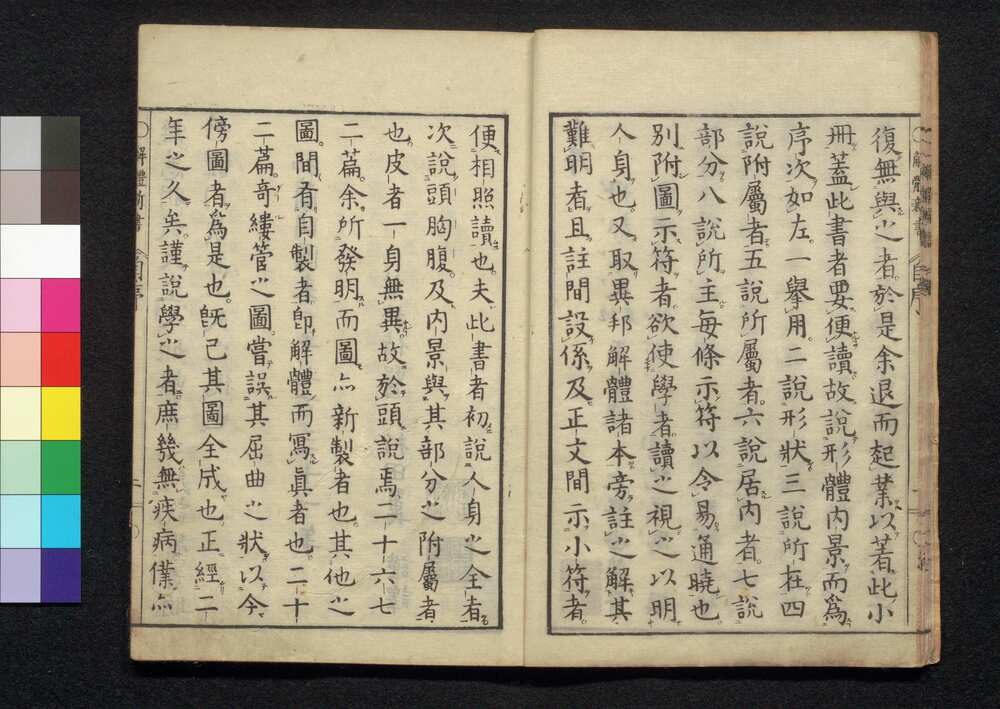 復無與之者於是余退而起業以著此小
冊蓋此書者要便讀故說形體內景而爲
序次如左一擧用二說形狀三說所在四
說附屬者五說所屬者六說居內者七說
部分八說所主每條示符以令易通曉也
別附圖示符者欲使學者讀之視之以明
人身也又取異邦解體諸本旁註之解其
難明者且註間設係及正文間示小符者
便相照讀也夫此書者初說人身之全者
次說頭胸腹及內景與其部分之附屬者
也皮者一身無異故於頭說焉二十六七
二篇余所發明而圖亦新製者也其他之
圖間有自製者卽解體而寫眞者也二十
二篇奇縷管之圖嘗誤其屈曲之狀以今
傍圖者爲是也旣已其圖全成也正經二
年之久矣謹說學之者庶幾無疾病僕亦
解體新書 自序 二